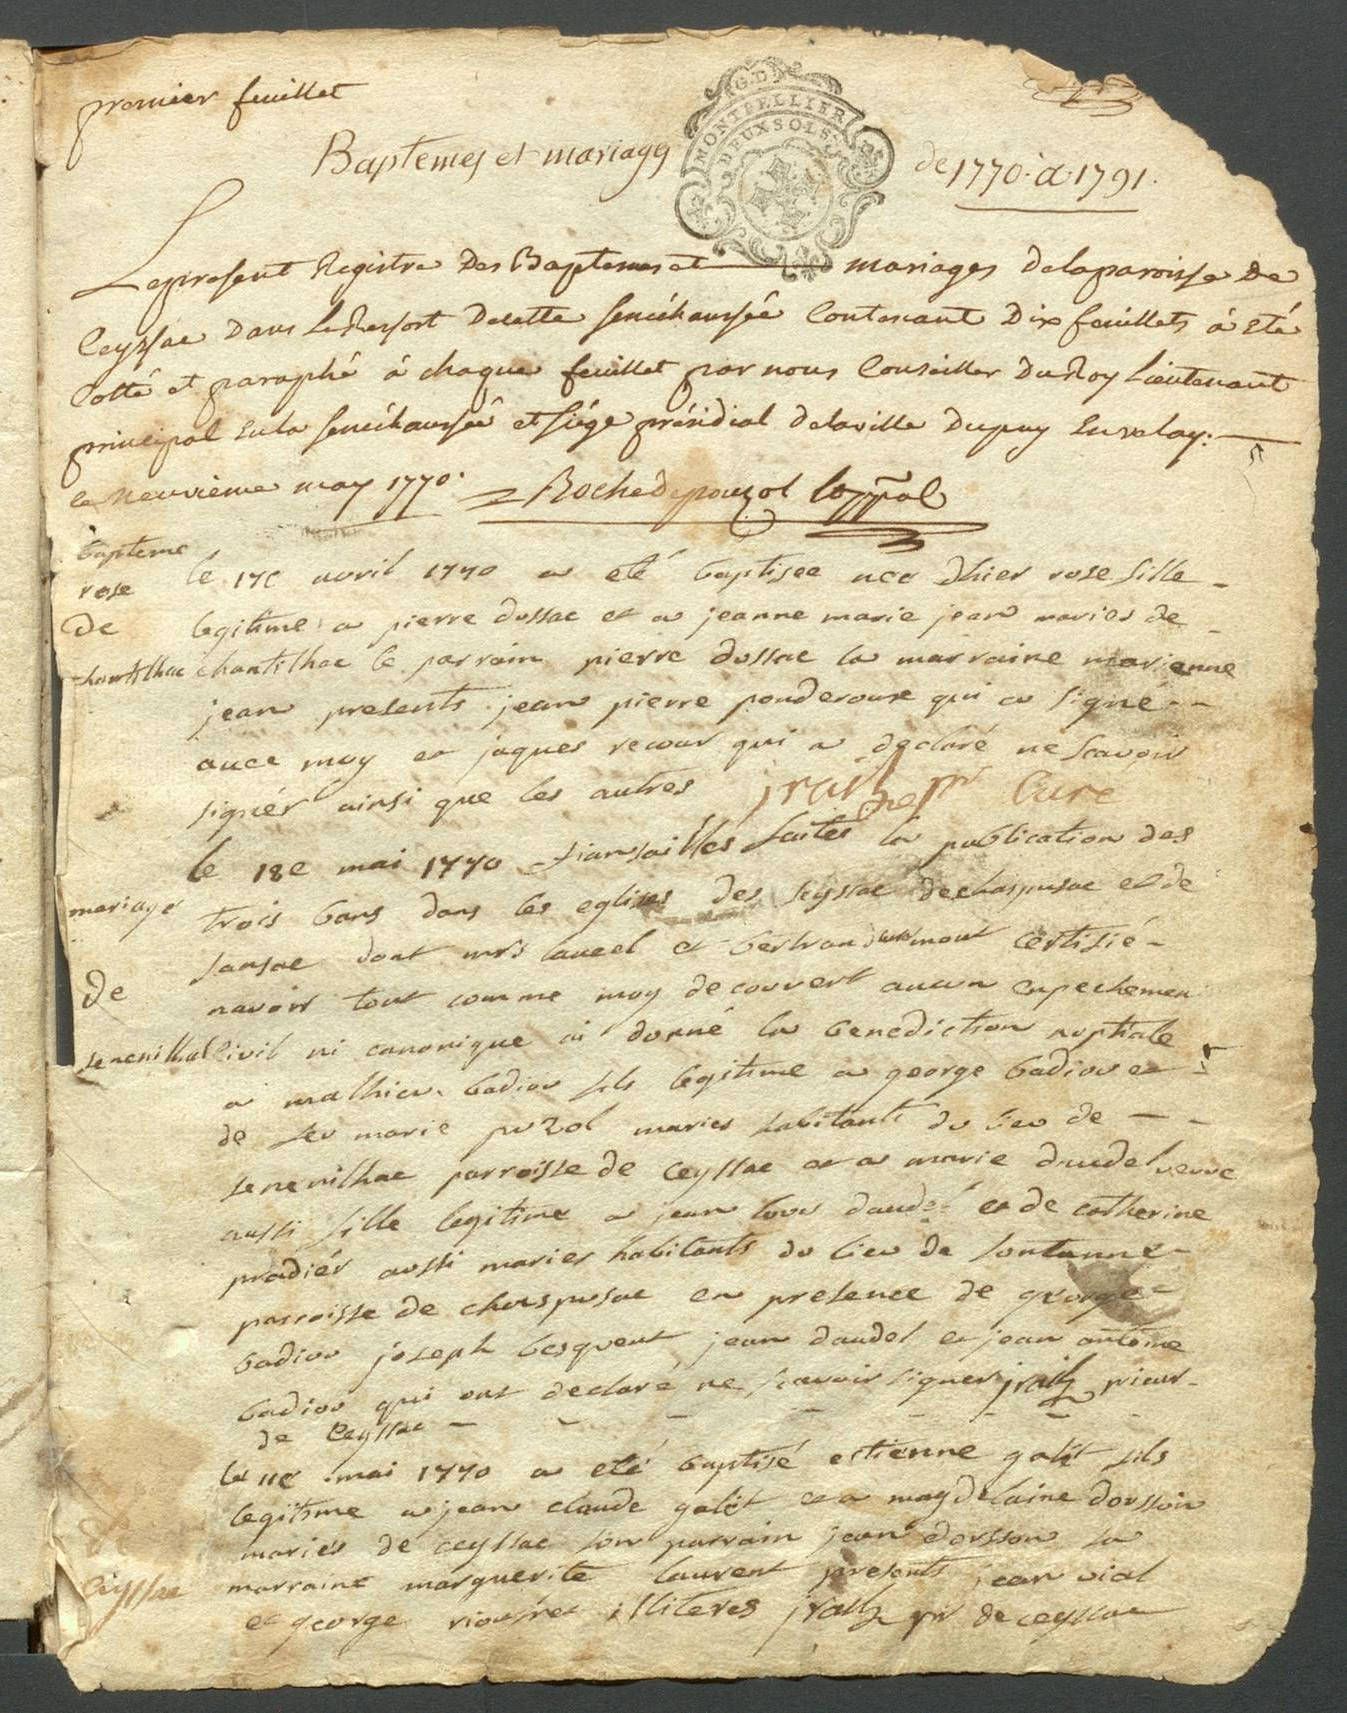 premier feuillet
G.D
MONTPELLIER
DEUX SOLS
Baptemes et mariages de 1770. a. 1791.
Le present Registre Des Baptemes et mariages de la paroisse De
Ceyssac Dans le Ressort De cette senéchaussée Contenant Dix feuillets á Eté
Cotté et paraphé á chaque feuillet par nous Conseiller Du Roy Lieutenant
principal En la senéchaussée et siége présidial de la ville Du puy En velay:
le neuvieme may 1770. Roche de pouzol
bapteme
rose
de
chantilhac
le 17e avril 1770 a eté baptisee nee d'hier rose fille
legitime a pierre dossac et a jeanne marie jean maries de
chantilhac le parrain pierre dossac la marraine marienne
jean presents jean pierre ponderoux qui a signé
avec moy et jaques recour qui a declaré ne scavoir
signér ainsi que les autres jrailh pr Curé
mariage
de
senenilhac
le 18e mai 1770 fiansailles faites la publication des
trois bans dans les eglises des seyssac de chaspusac et de
sansac dont mrs et certifié
navoir tout comme moy decouvert aucun enpechemen
civil ni canonique ai donné la benediction nuptiale
a mathieu badiou fils legitime a george badiou et
de feu marie puzol maries habitants du lieu de
senenilhac parroisse de ceyssac et a marie daudel veuve
aussi fille legitime a jean daudel et de catherine
pradiér aussi maries habitants du lieu de fontanne
parroisse de chaspusac en presence de george
badiou joseph besquent jean daudel et jean antoine
badiou qui ont declaré ne scavoir signer jrailh prieur
de Ceyssac
de
Ceyssac
le 11e mai 1770 a eté baptisé estienne galit fils
legitime a jean claude galit et a magdelaine dorsson
mariés de ceyssac son parrain jean dorsson la
marraine marguerite laurent presents jean vial
et george illiteres jrailh pr de ceyssac